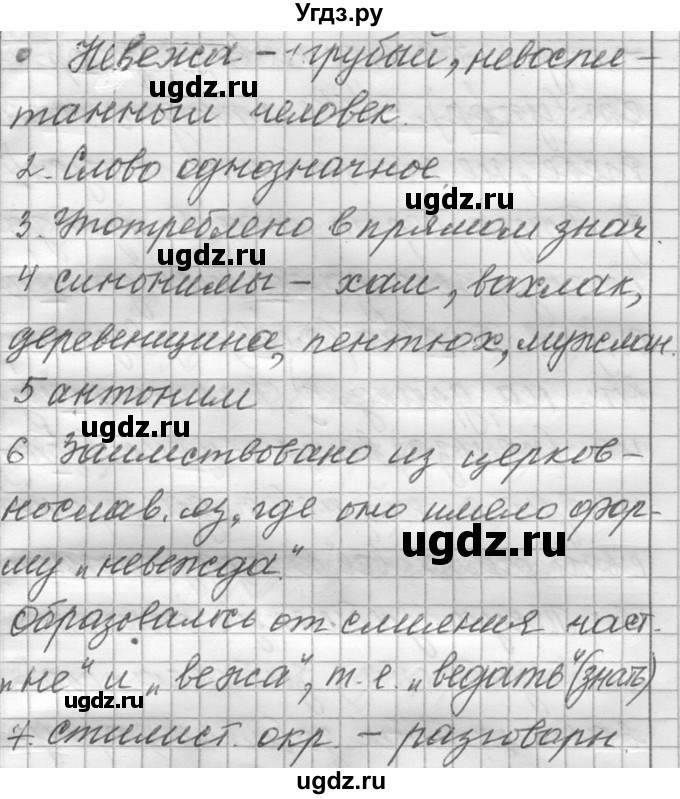 Угдз.ру
Невежа – 1. грубый, невоспи-
ugdz.ru
танный человек.
2. Слово однозначное
ugdz.ru
3. Употреблено в прямом знач.
ugdz.ru
4 синонимы – хам, вахлак,
деревенщина, пентюх, мужлан.
ugdz.ru
5 антоним
ugdz.ru
6 Заимствовано из церков-
нослав. яз., где оно имело фор-
ugdz.ru
му „невежда."
Образовалось от слияния част.
„не" и „вежа", т. е. „ведать" (знать)
ugdz.ru
7. стилист. окр. – разговорн.
ugdz.ru